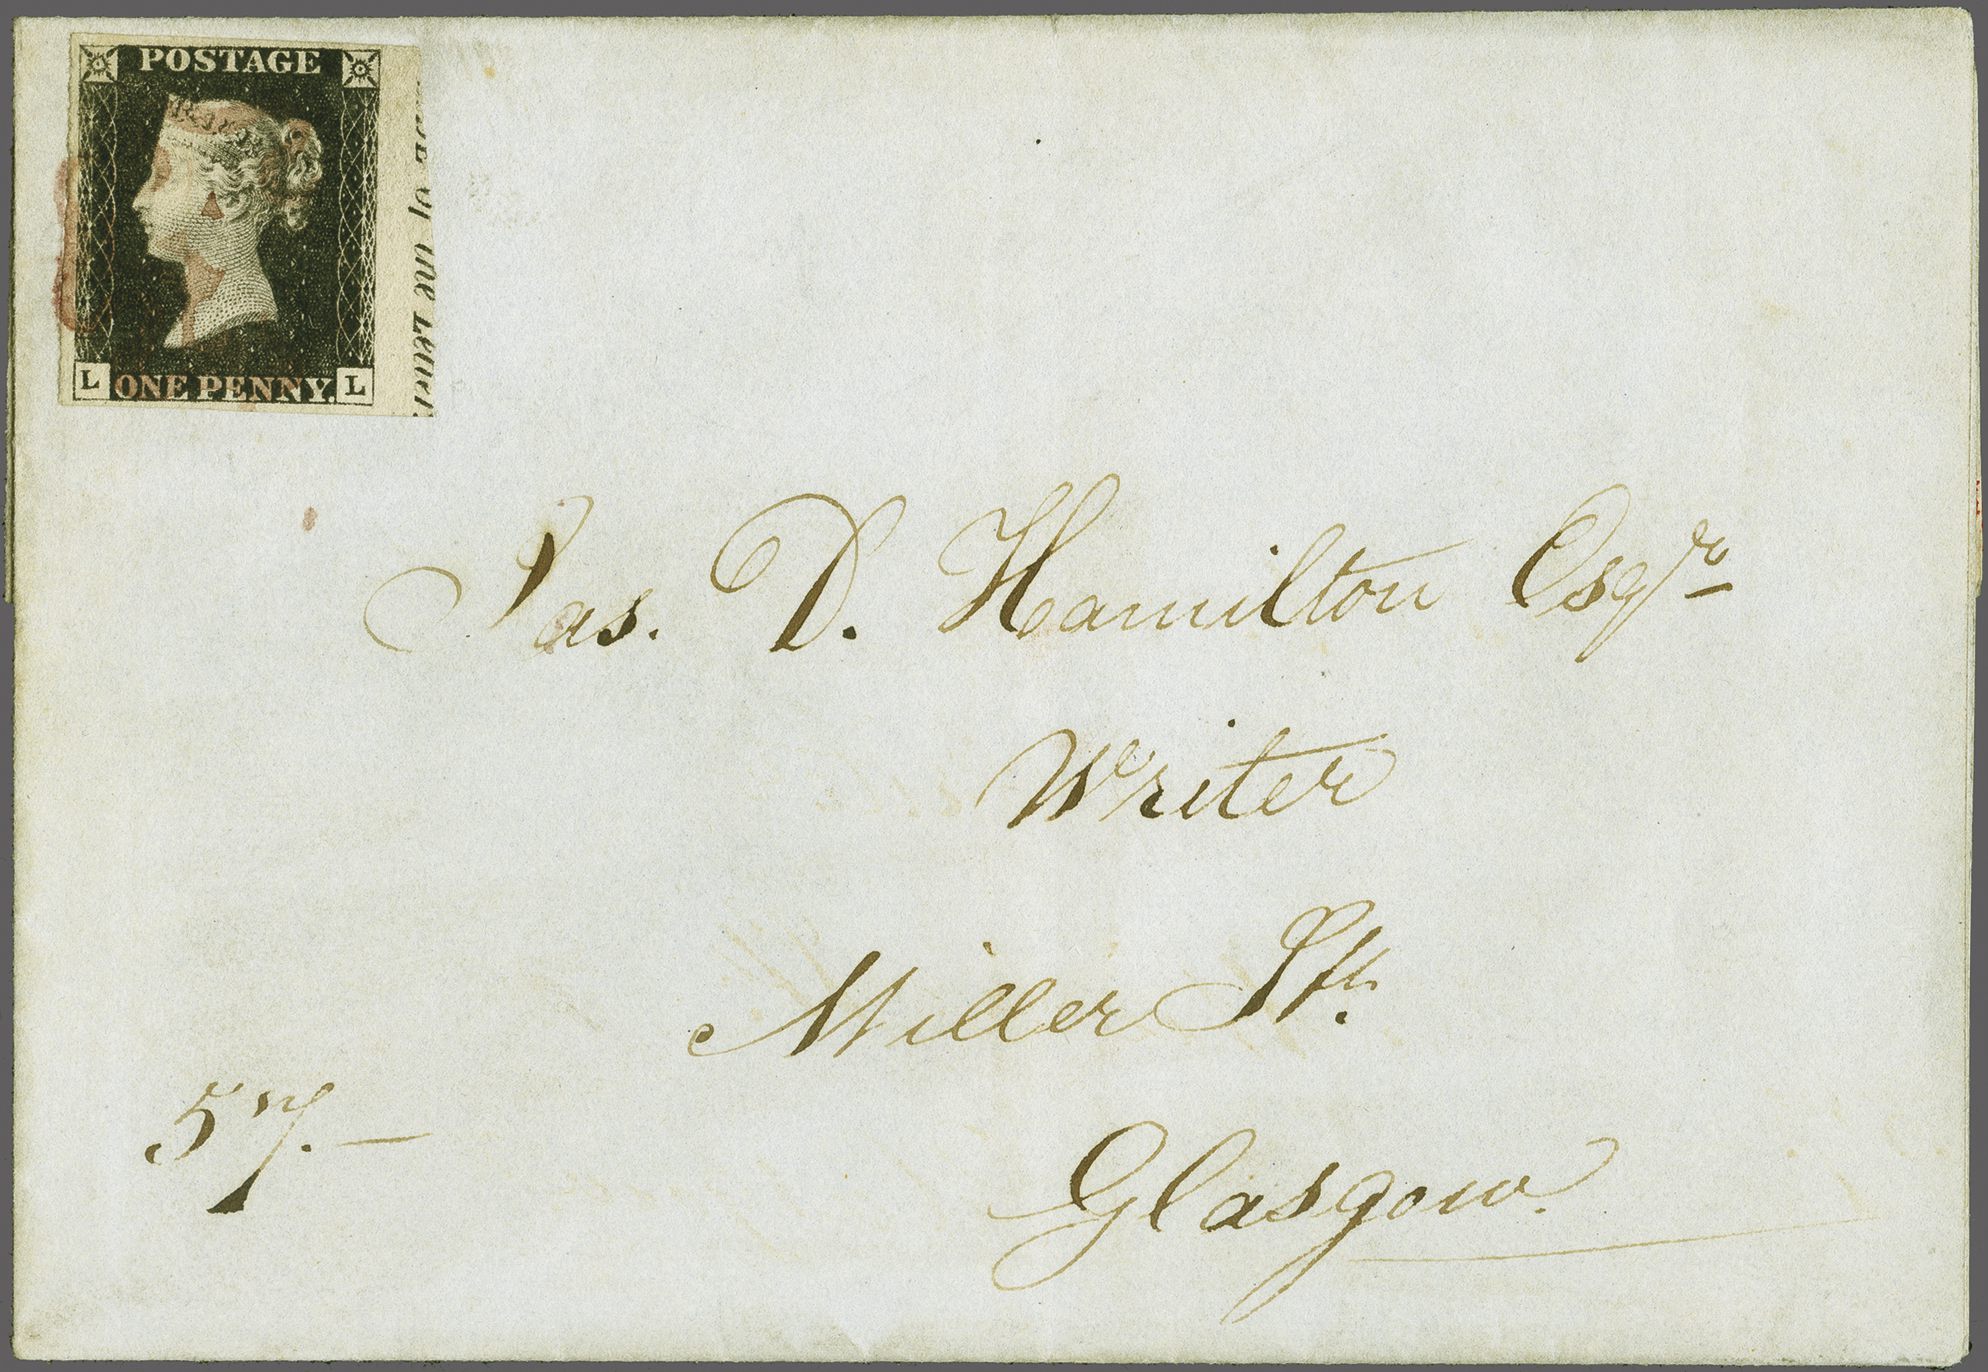 POSTAGE
of the Letter.
L ONE PENNY. L
Jas. D. Hamilton Esqre
Writer
Miller St.
57.—
Glasgow.